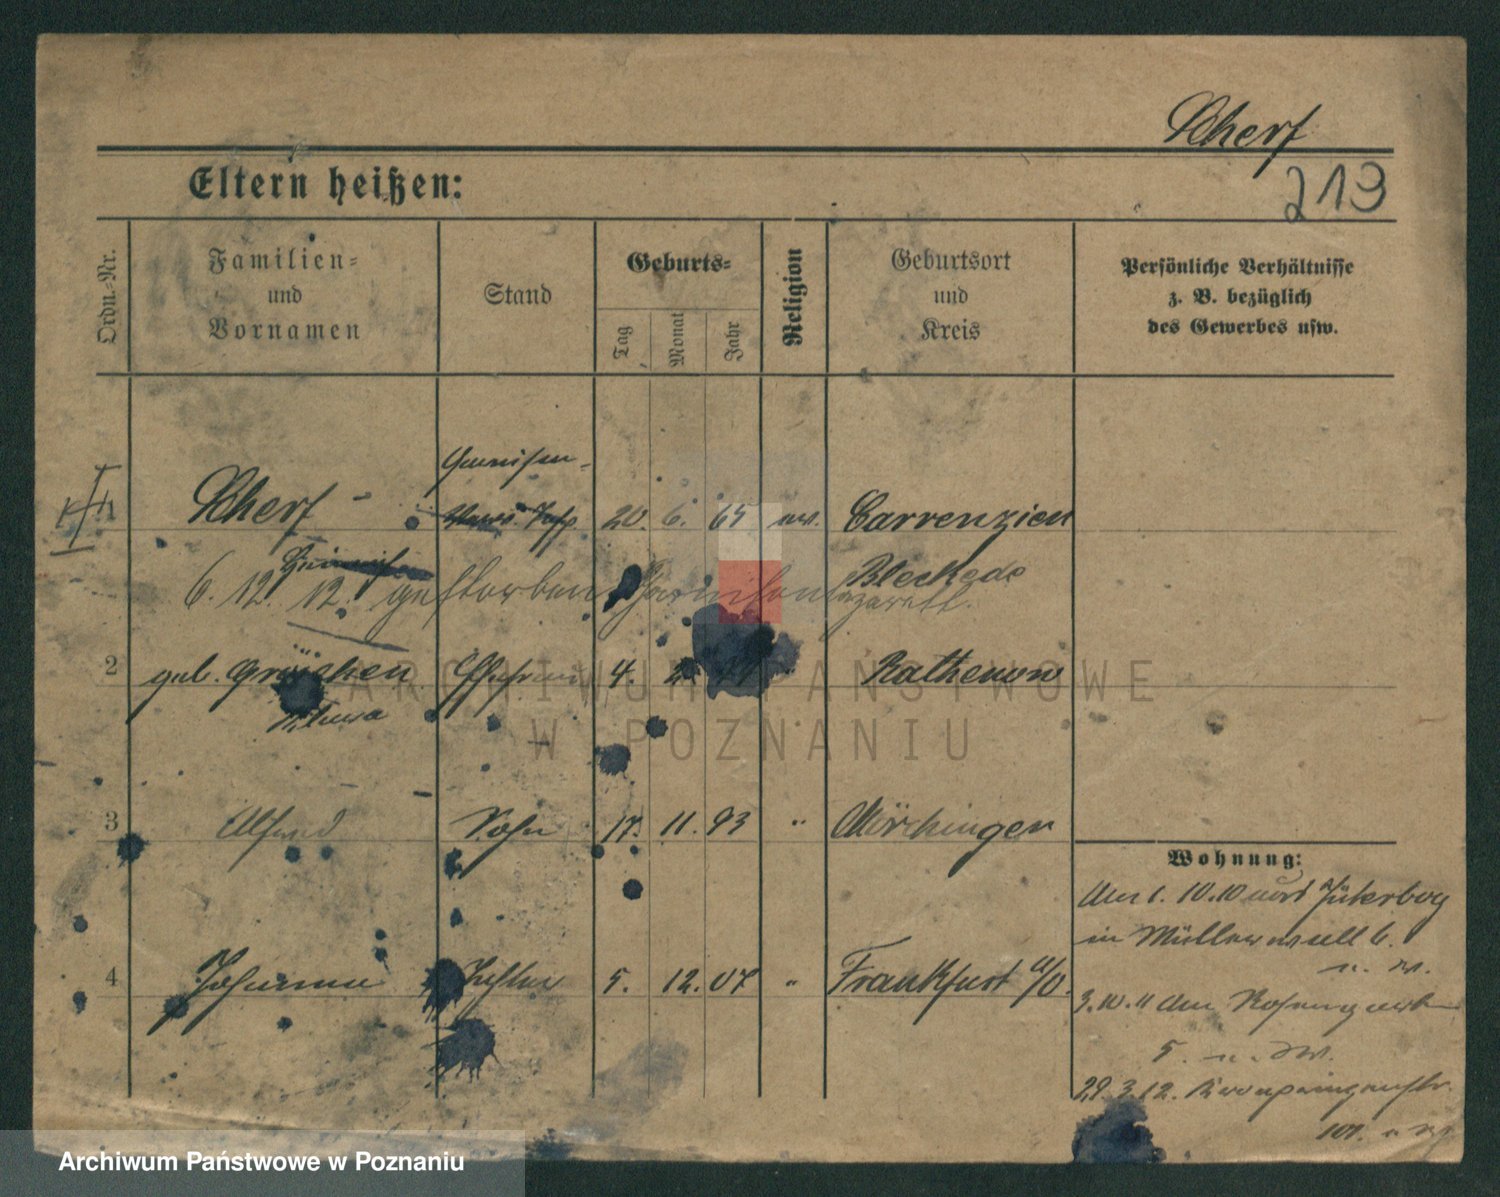 Scherf
219
Eltern heißen:
Ordn.-Nr.
Familien-
und
Vornamen
Stand
Geburts-
Tag
Monat
Jahr
Religion
Geburtsort
und
Kreis
Persönliche Verhältnisse
z. B. bezüglich
des Gewerbes usw.
Garnison-
1 Scherf 20. 6. 65 ev. Carrenzien
Heinrich Bleckede
6. 12. 12. gestorben Garnisonlazarett.
2 geb. Ehefrau 4. Rathenow
3 Alfred Sohn 17. 11. 93 " Mörchingen
Wohnung:
1. 10. 10 von Jüterbog
in 6.
4 Johanna Tochter 5. 12. 07 " Frankfurt a/O.
3. 10. 11 Am Rosengarten
5.
29. 3. 12.
ARCHIWUM PAŃSTWOWE
W POZNANIU
Archiwum Państwowe w Poznaniu